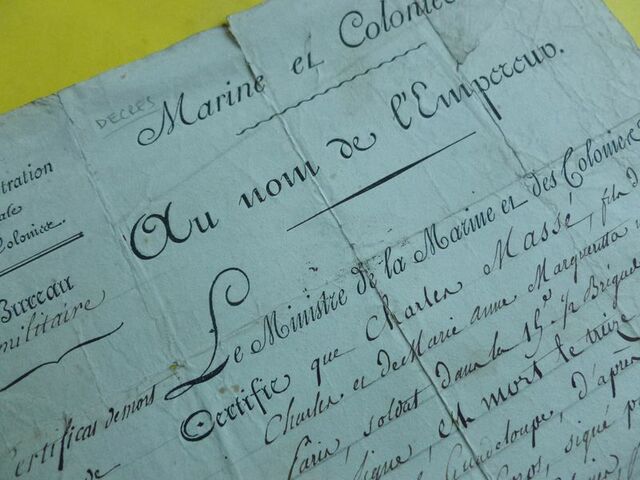 Marine et Colonie
DECRES
Au nom de l'Empereur.
tration
ale
Colonies.
Bureau
militaire
Certificat de mort
de
Le Ministre de la Marine et des Colonies
Certifie que Charles Massé, fils d
Charles et de Marie Anne Marguerite
Paris, soldat dans la 15e 1/2 Brigade
Ligne, est mort le treize
Guadeloupe, d'après
signé p